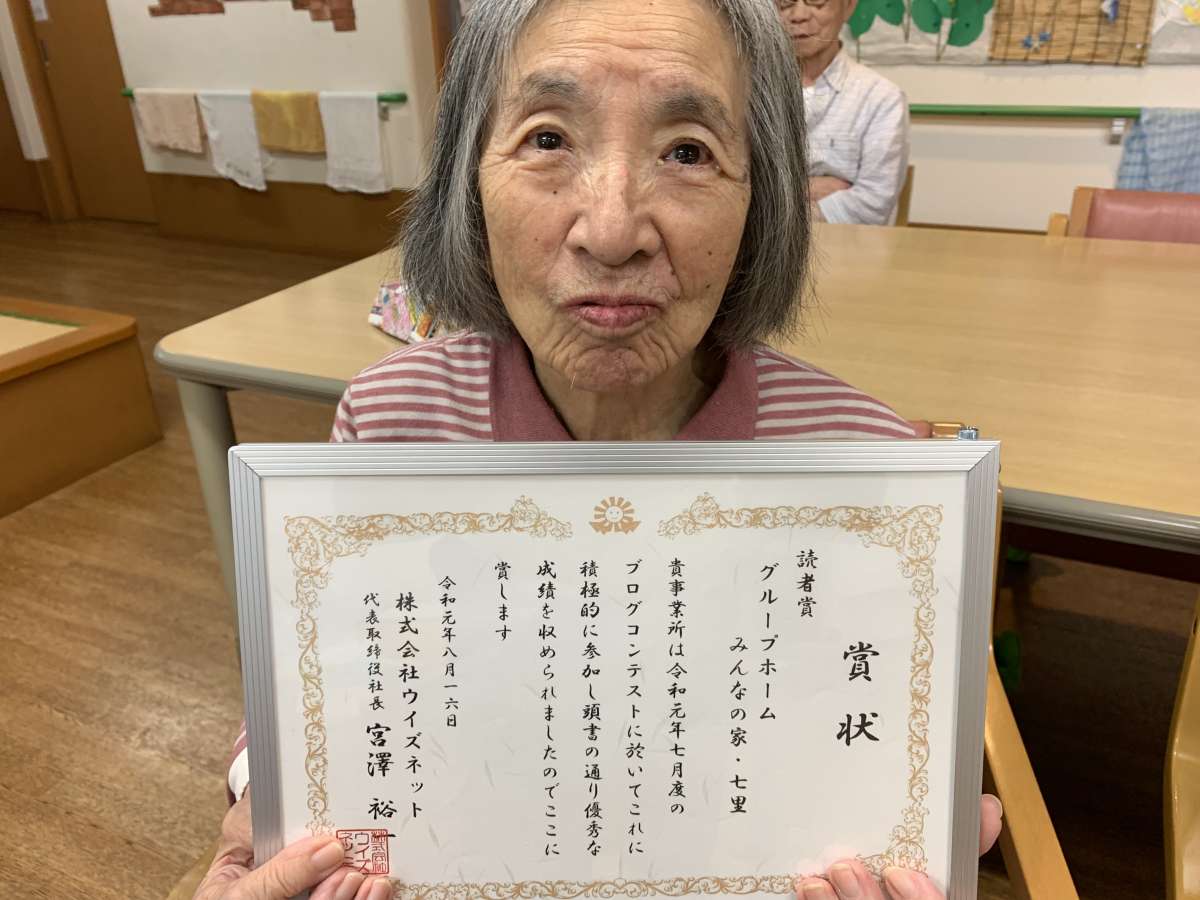 賞状
読者賞
グループホーム
みんなの家・七里
貴事業所は令和元年七月度の
ブログコンテストに於いてこれに
積極的に参加し頭書の通り優秀な
成績を収められましたのでここに
賞します
令和元年八月一六日
株式会社ウイズネット
代表取締役社長 宮澤 裕一
株式会社
ウイズ
ネット